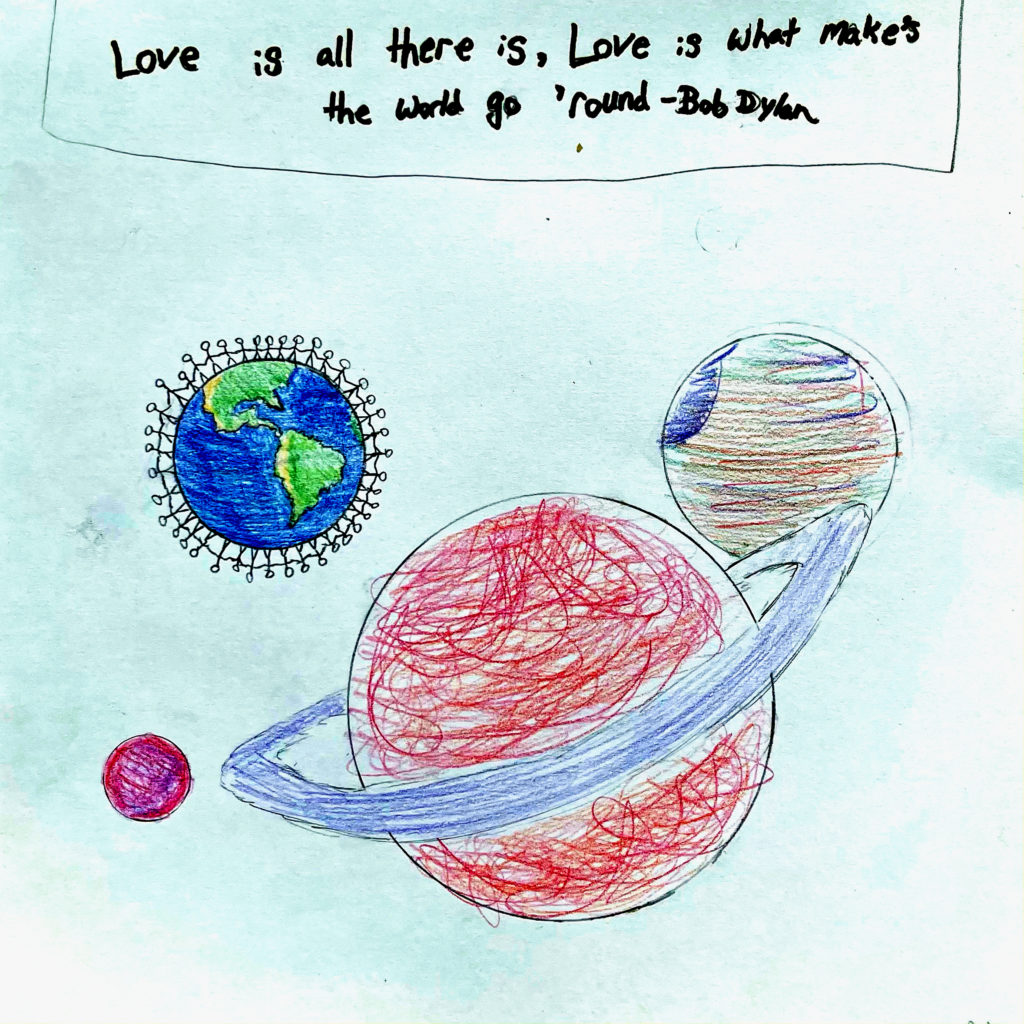 Love is all there is, Love is what make's
the world go 'round - Bob Dylan